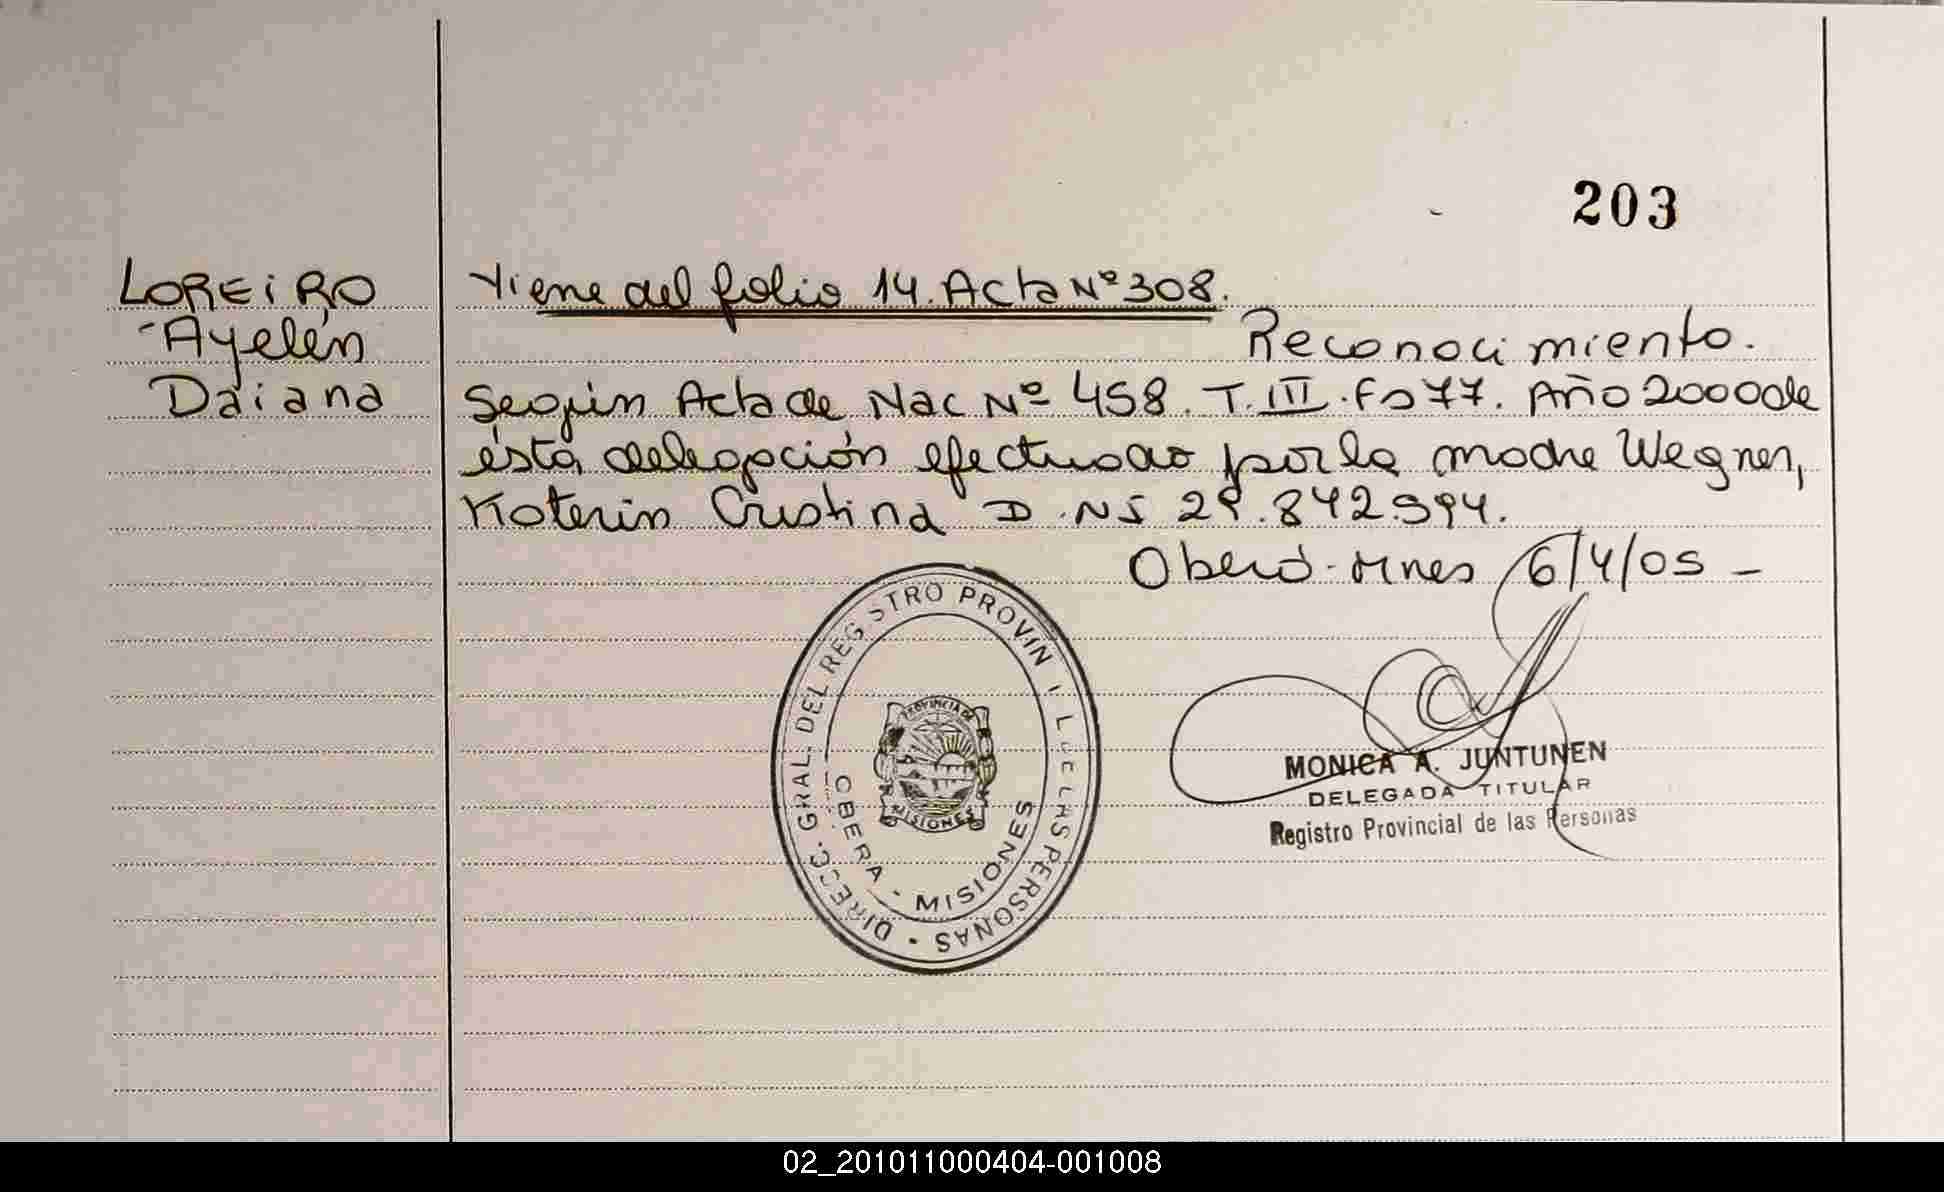 203
LOREIRO
Ayelén
Daiana
Viene del folio 14. Acta Nº 308.
Reconocimiento.
Según Acta de Nac Nº 458. T. III. Fo 77. Año 2000 de
ésta delegación efectuado por la madre Wegner,
Katerin Cristina D.NI 29.842.994.
Oberá - Mnes 6/4/05 -
DIRECC. GRAL. DEL REGISTRO PROVINCIAL DE LAS PERSONAS
OBERA - MISIONES
PROVINCIA DE
MISIONES
MONICA A. JUNTUNEN
DELEGADA TITULAR
Registro Provincial de las Personas
02_201011000404-001008